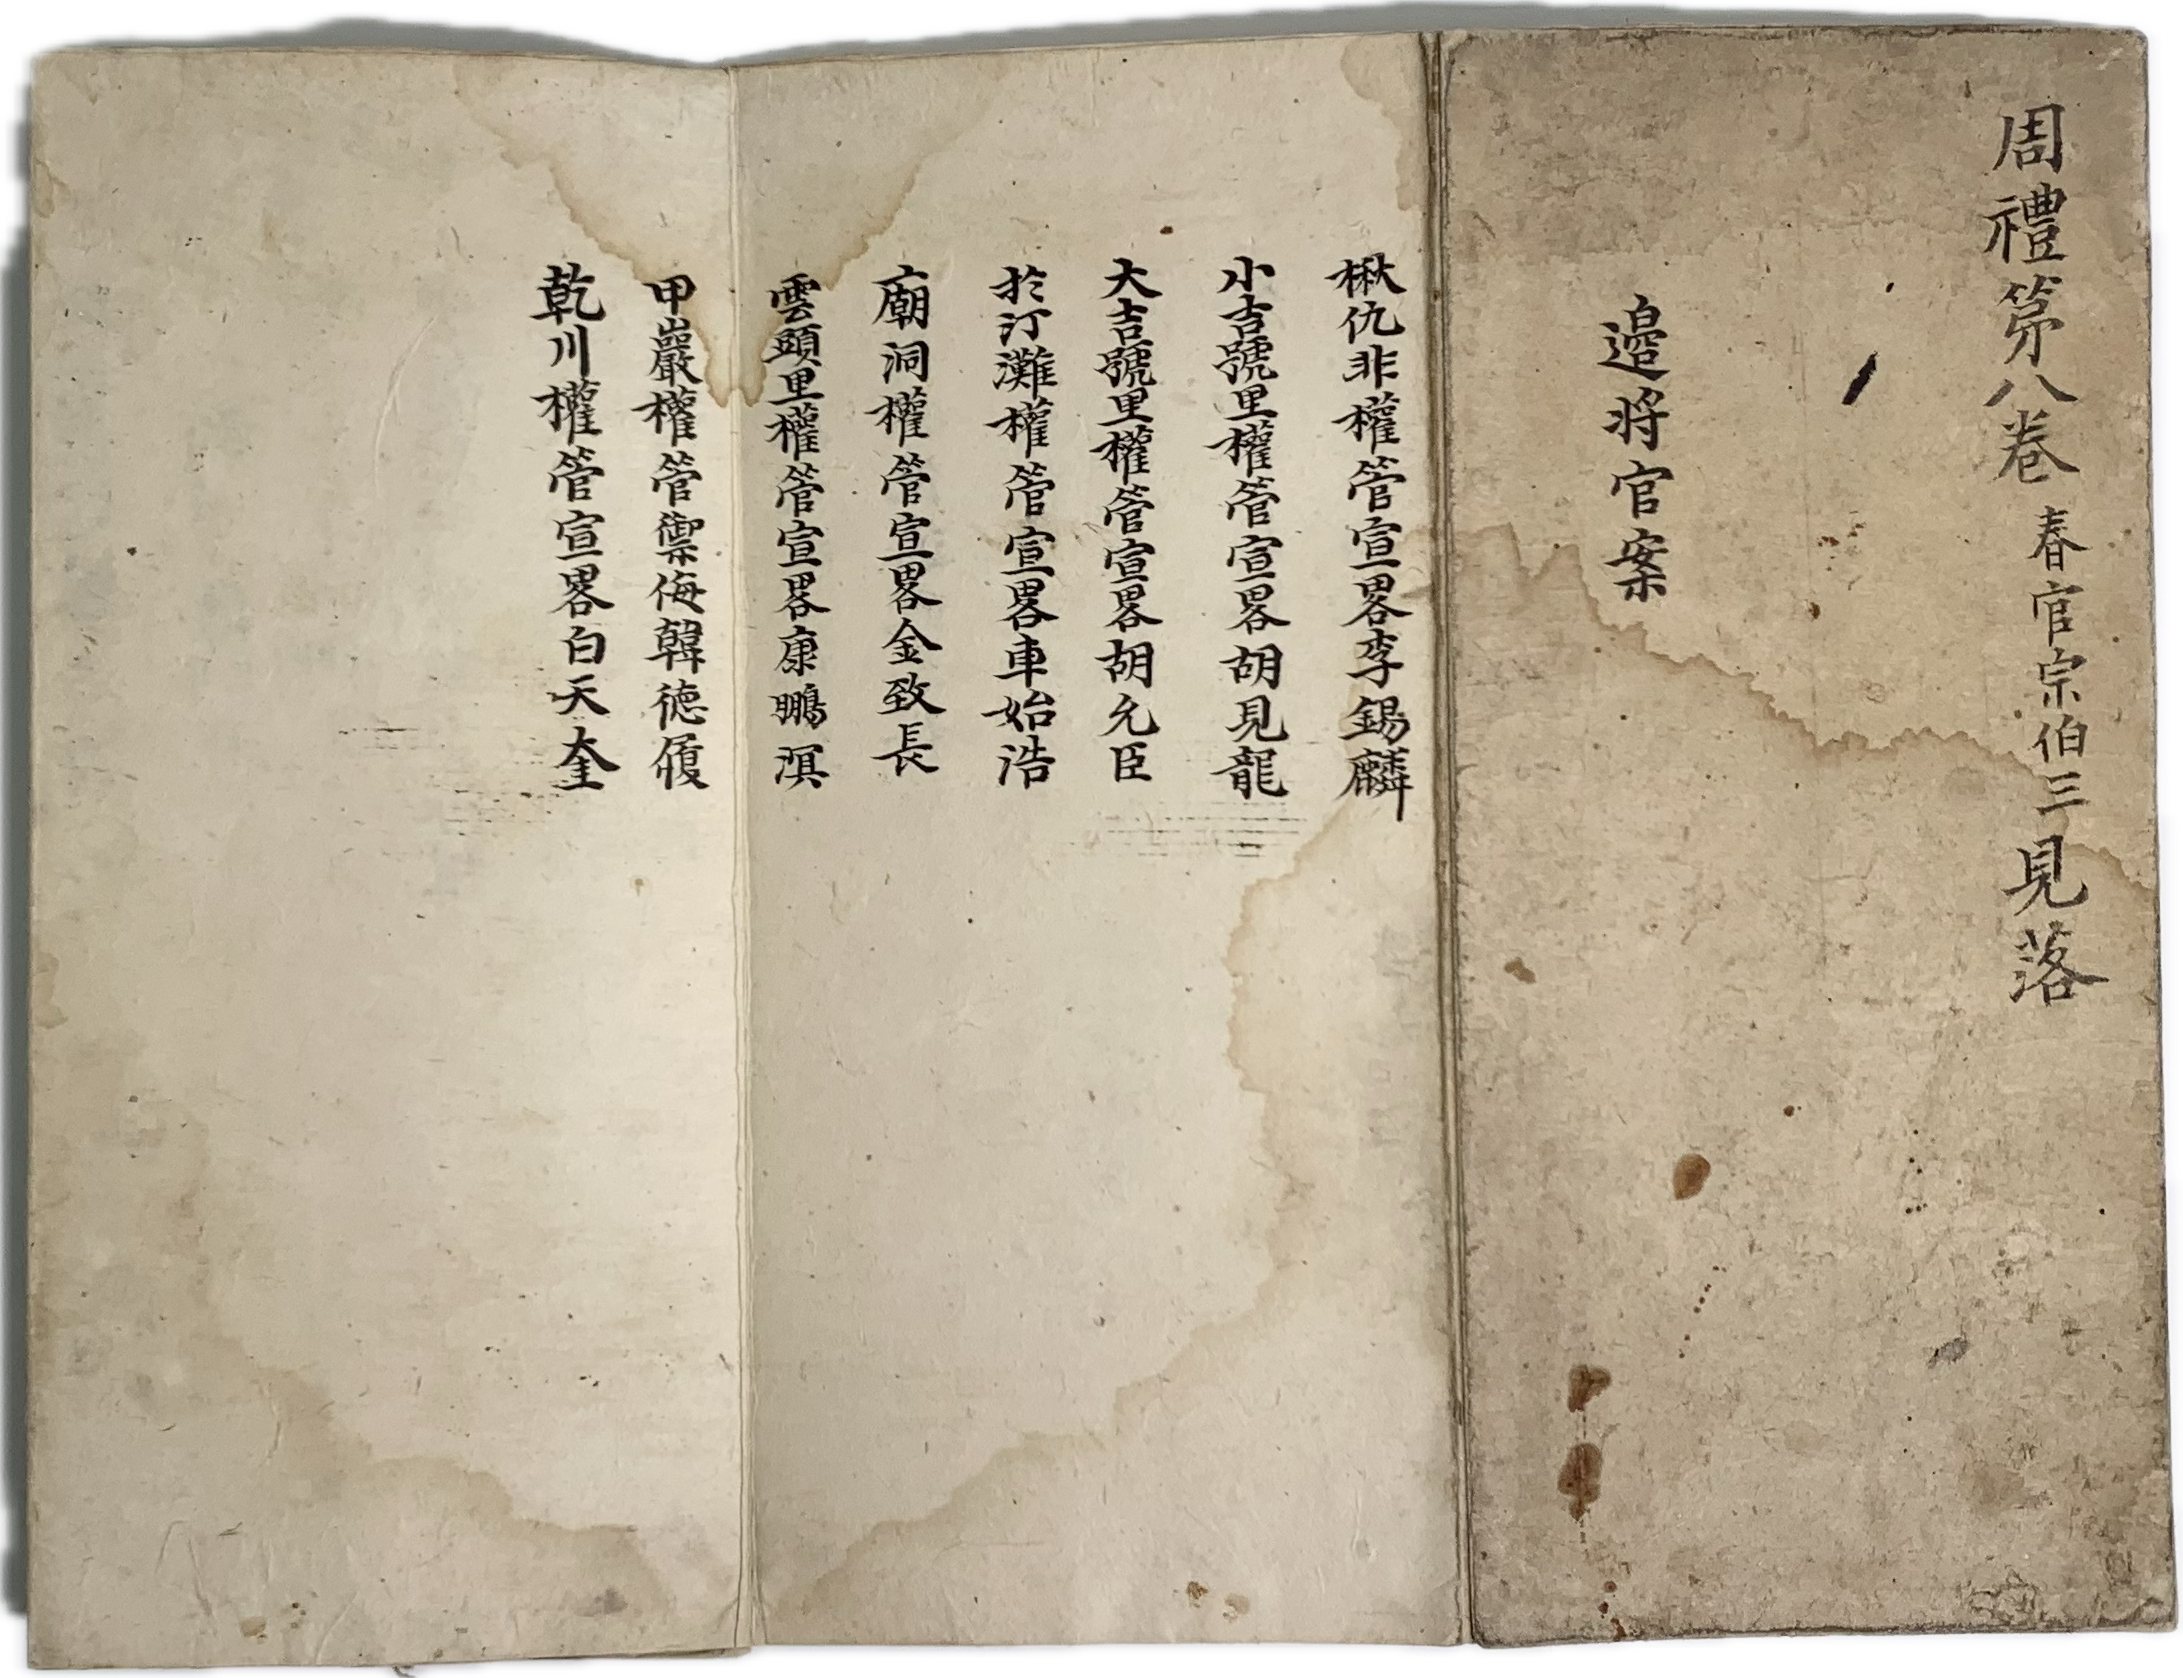 周禮苐八卷 春官宗伯三 見落
邉将官案
楸仇非權管宣畧李錫麟
小吉號里權管宣畧胡見龍
大吉號里權管宣畧胡允臣
於汀灘權管宣畧車始浩
廟洞權管宣畧金致長
雲頭里權管宣畧康鵬溟
甲巖權管禦侮韓德履
乾川權管宣畧白天奎